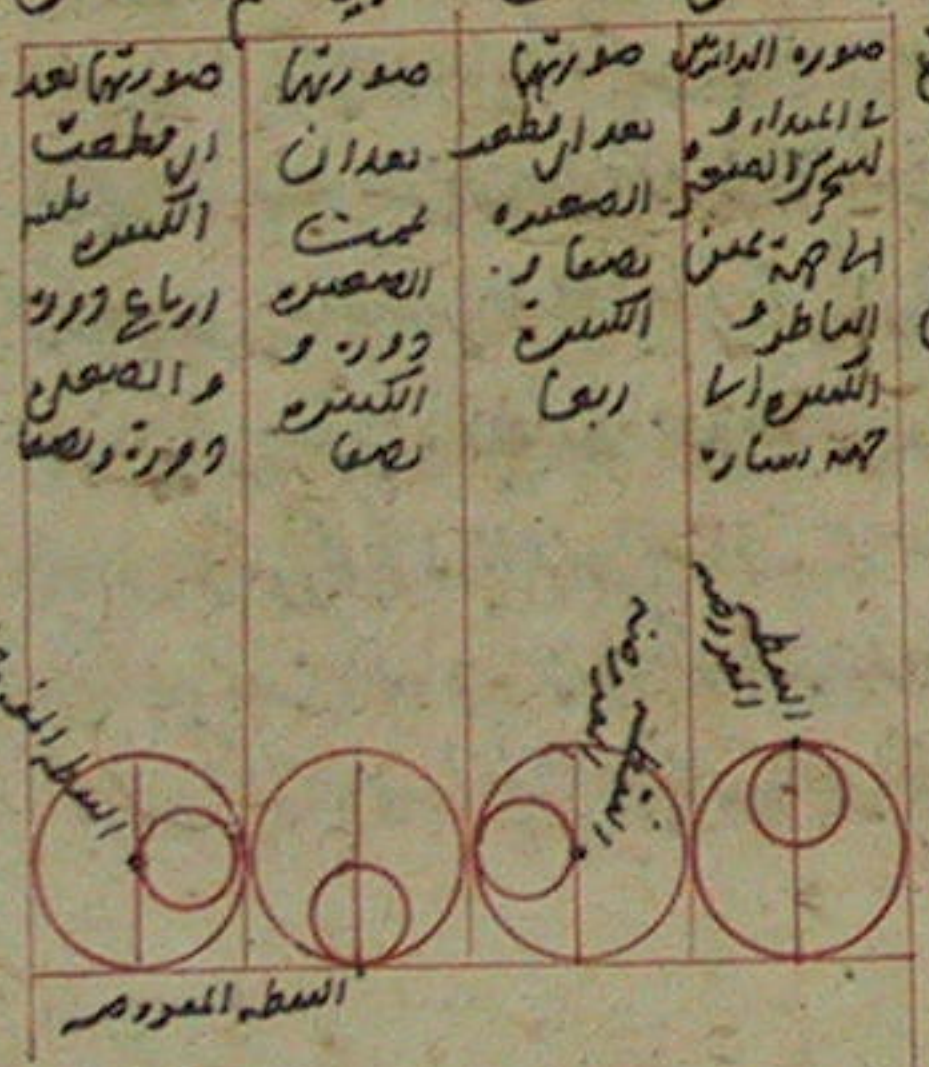 صورة الدائرتين
في المبداء و
لتتحرك الصغيرة
الى جهة يمين
الناظر و
الكبيرة الى
جهة يساره
صورتها
بعد ان قطعت
الصغيرة
نصفا و
الكبيرة
ربعا
صورتها
بعد ان
تممت
الصغيرة
دورة و
الكبيرة
نصفا
صورتها بعد
ان قطعت
الكبيرة ثلثه
ارباع دورة
و الصغيرة
دورة ونصفا
النقطه
المفروضه
النقطه
المفروضه
النقطه
النقطه المفروضه